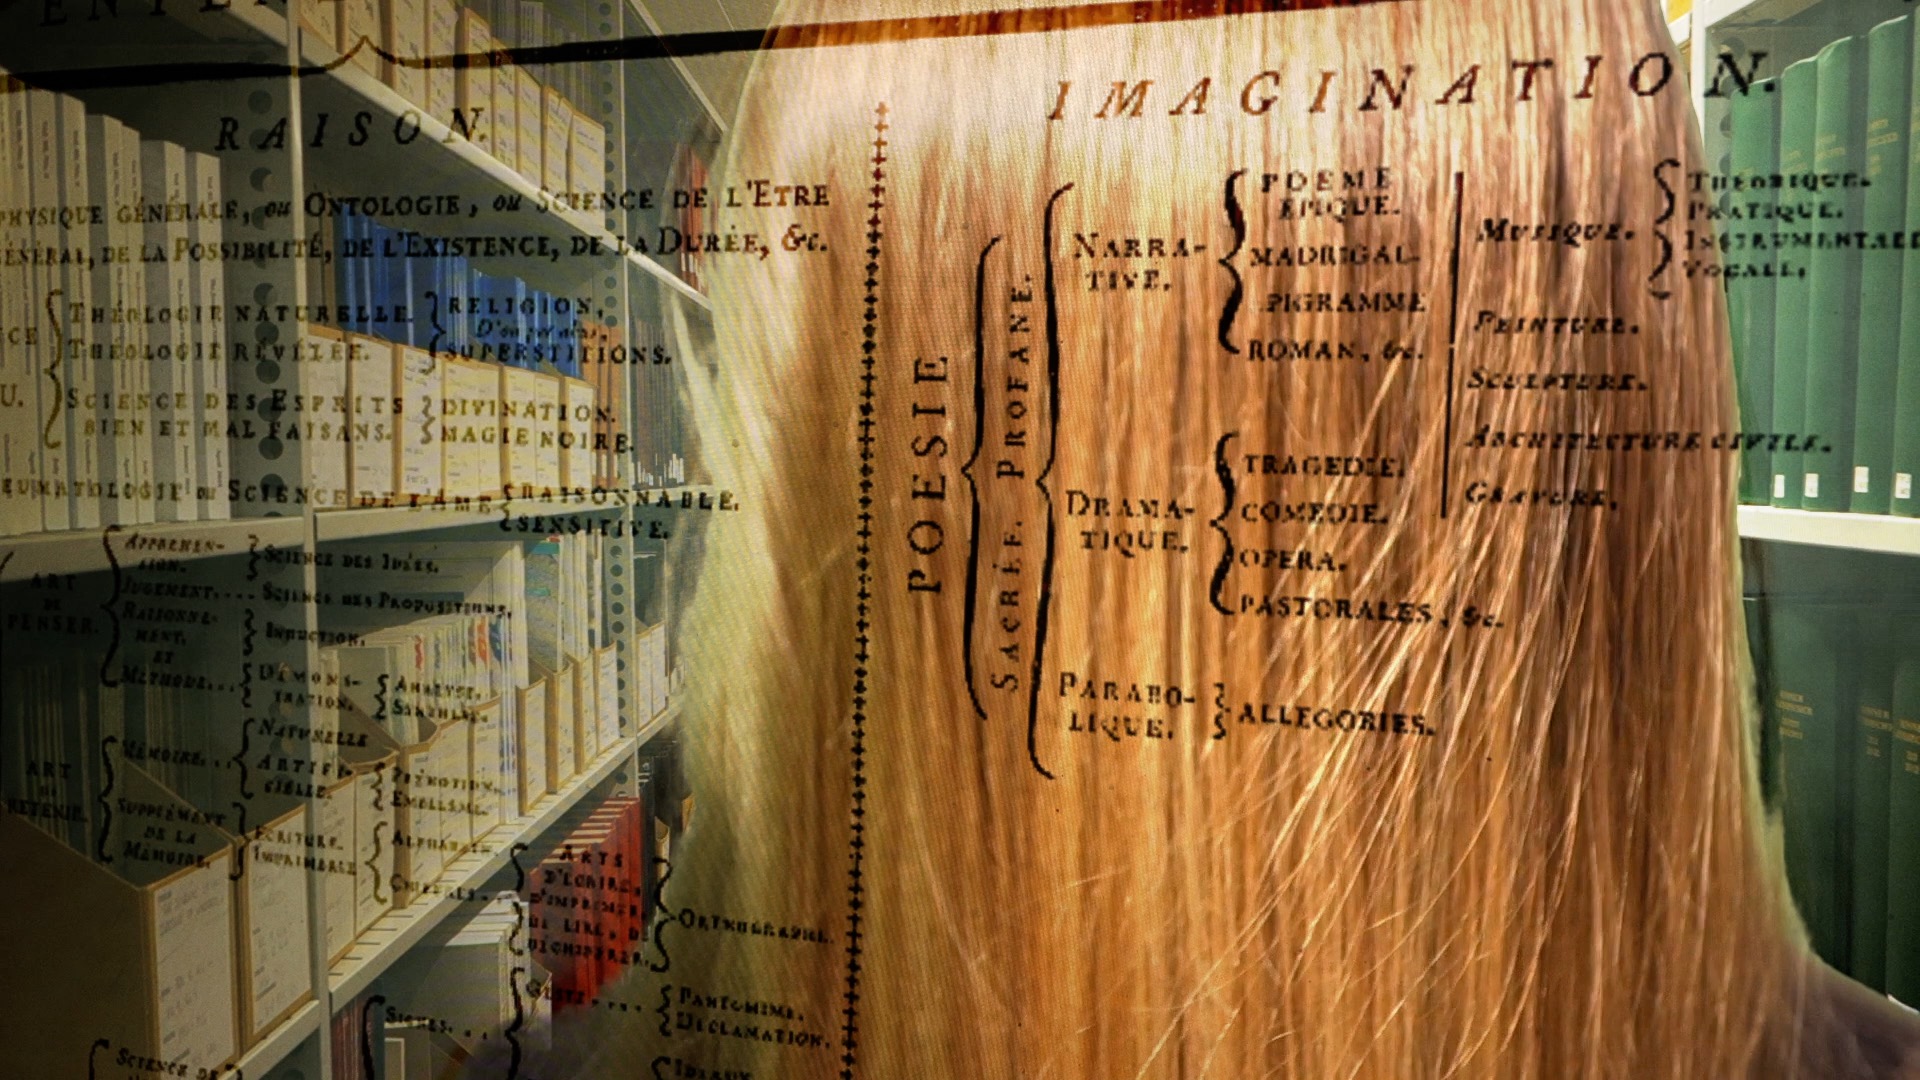 RAISON.
PHYSIQUE GÉNÉRALE, ou ONTOLOGIE, ou SCIENCE DE L'ETRE
GÉNÉRAL, DE LA POSSIBILITÉ, DE L'EXISTENCE, DE LA DURÉE, &c.
THÉOLOGIE NATURELLE.
THÉOLOGIE RÉVÉLÉE.
RELIGION,
SUPERSTITIONS.
SCIENCE DES ESPRITS
BIEN ET MAL FAISANS.
DIVINATION.
MAGIE NOIRE.
ou SCIENCE DE L'AME
RAISONNABLE.
SENSITIVE.
ART
DE
PENSER.
APPRÉHEN-
SION.
SCIENCE DES IDÉES.
JUGEMENT....
SCIENCE DES PROPOSITIONS,
RAISONNE-
MENT.
INDUCTION.
ET
MÉTHODE...
DÉMONS-
TRATION.
ANALYSE.
SYNTHESE.
ART
DE
RETENIR.
MÉMOIRE...
NATURELLE
ARTIFI-
CIELLE.
PRÉNOTION.
EMBLEME.
SUPPLÉMENT
DE LA
MÉMOIRE.
ECRITURE.
IMPRIMERIE
ALPHABET.
ARTS
D'ECRIRE,
D'IMPRIMER,
DE LIRE, DE
DÉCHIFFRER.
ORTHOGRAPHE.
SIGNES...
GESTE....
PANTOMIME.
DÉCLAMATION.
SCIENCE DE
IMAGINATION.
POESIE
SACRÉE. PROFANE.
NARRA-
TIVE.
POEME
EPIQUE.
MADRIGAL
PIGRAMME
ROMAN, &c.
DRAMA-
TIQUE.
TRAGEDIE.
COMEDIE.
OPERA.
PASTORALES, &c.
PARABO-
LIQUE.
ALLEGORIES.
MUSIQUE.
THÉORIQUE.
PRATIQUE.
INSTRUMENTALE
VOCALE.
PEINTURE.
SCULPTURE.
ARCHITECTURE CIVILE.
GRAVURE.